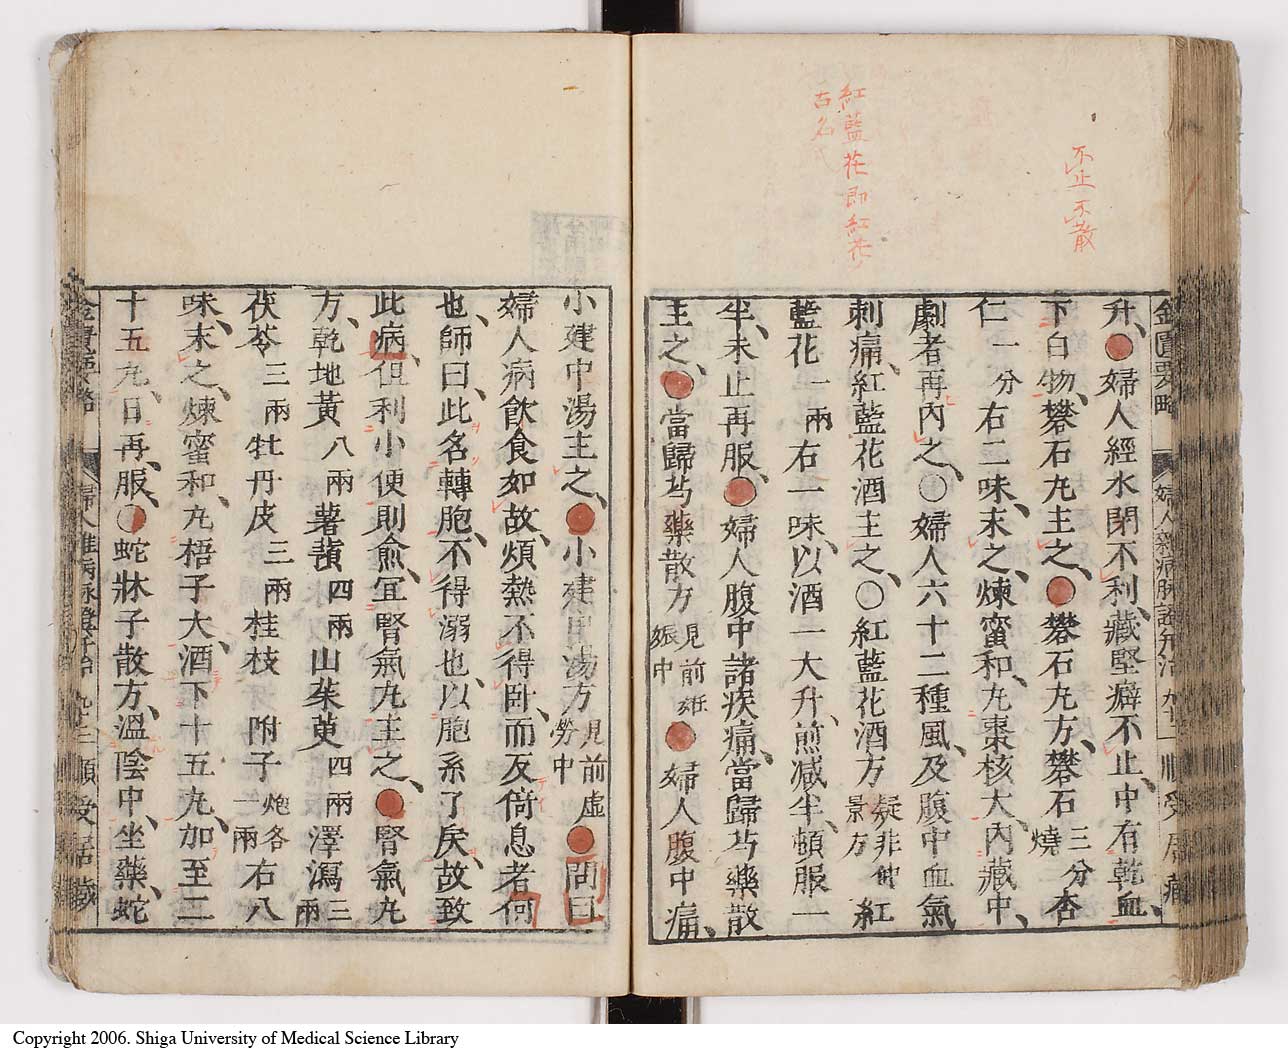 不止不散
紅藍花即紅花
古名
金匱要略 婦人雜病脉證并治 九十一 順受居藏
升、●婦人經水閉不利、藏堅癖不止、中有乾血、
下白物、礬石丸主之、●礬石丸方、礬石三分燒杏
仁一分右二味、末之、煉蜜和、丸棗核大、內藏中、
劇者再內之、○婦人六十二種風、及腹中血氣
刺痛、紅藍花酒主之、○紅藍花酒方疑非仲景方紅
藍花一兩右一味、以酒一大升、煎減半、頓服一
半、未止再服、●婦人腹中諸疾痛、當歸芍藥散
主之、●當歸芍藥散方見前姙娠中●婦人腹中痛、
小建中湯主之、●小建中湯方見前虛勞中●問曰
婦人病飲食如故、煩熱不得臥、而反倚息者何
也、師曰、此名轉胞、不得溺也、以胞系了戾、故致
此病、但利小便則愈、宜腎氣丸主之、●腎氣丸
方、乾地黃八兩薯蕷四兩山茱萸四兩澤瀉三兩
茯苓三兩牡丹皮三兩桂枝附子炮各一兩右八
味、末之、煉蜜和、丸梧子大、酒下十五丸、加至二
十五丸、日再服、●蛇牀子散方、溫陰中、坐藥、蛇
金匱要略 婦人雜病脉證并治 九十二 順受居藏
Copyright 2006. Shiga University of Medical Science Library